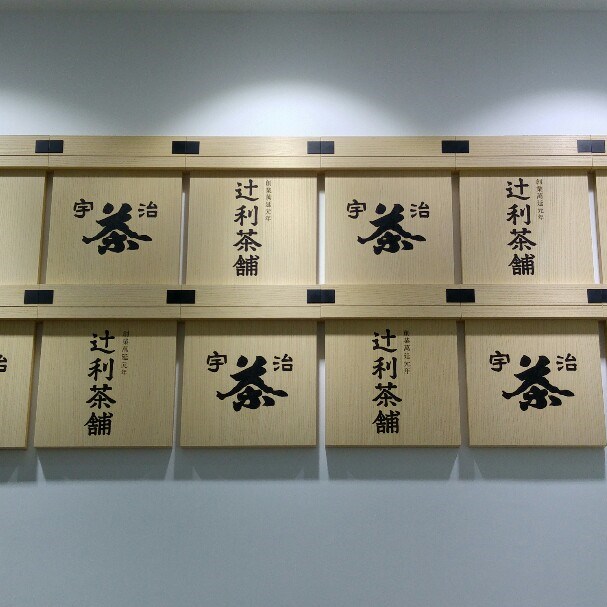 宇茶治
創業萬延元年
辻利茶舗
宇茶治
創業萬延元年
辻利茶舗
治
創業萬延元年
辻利茶舗
宇茶治
創業萬延元年
辻利茶舗
宇茶治